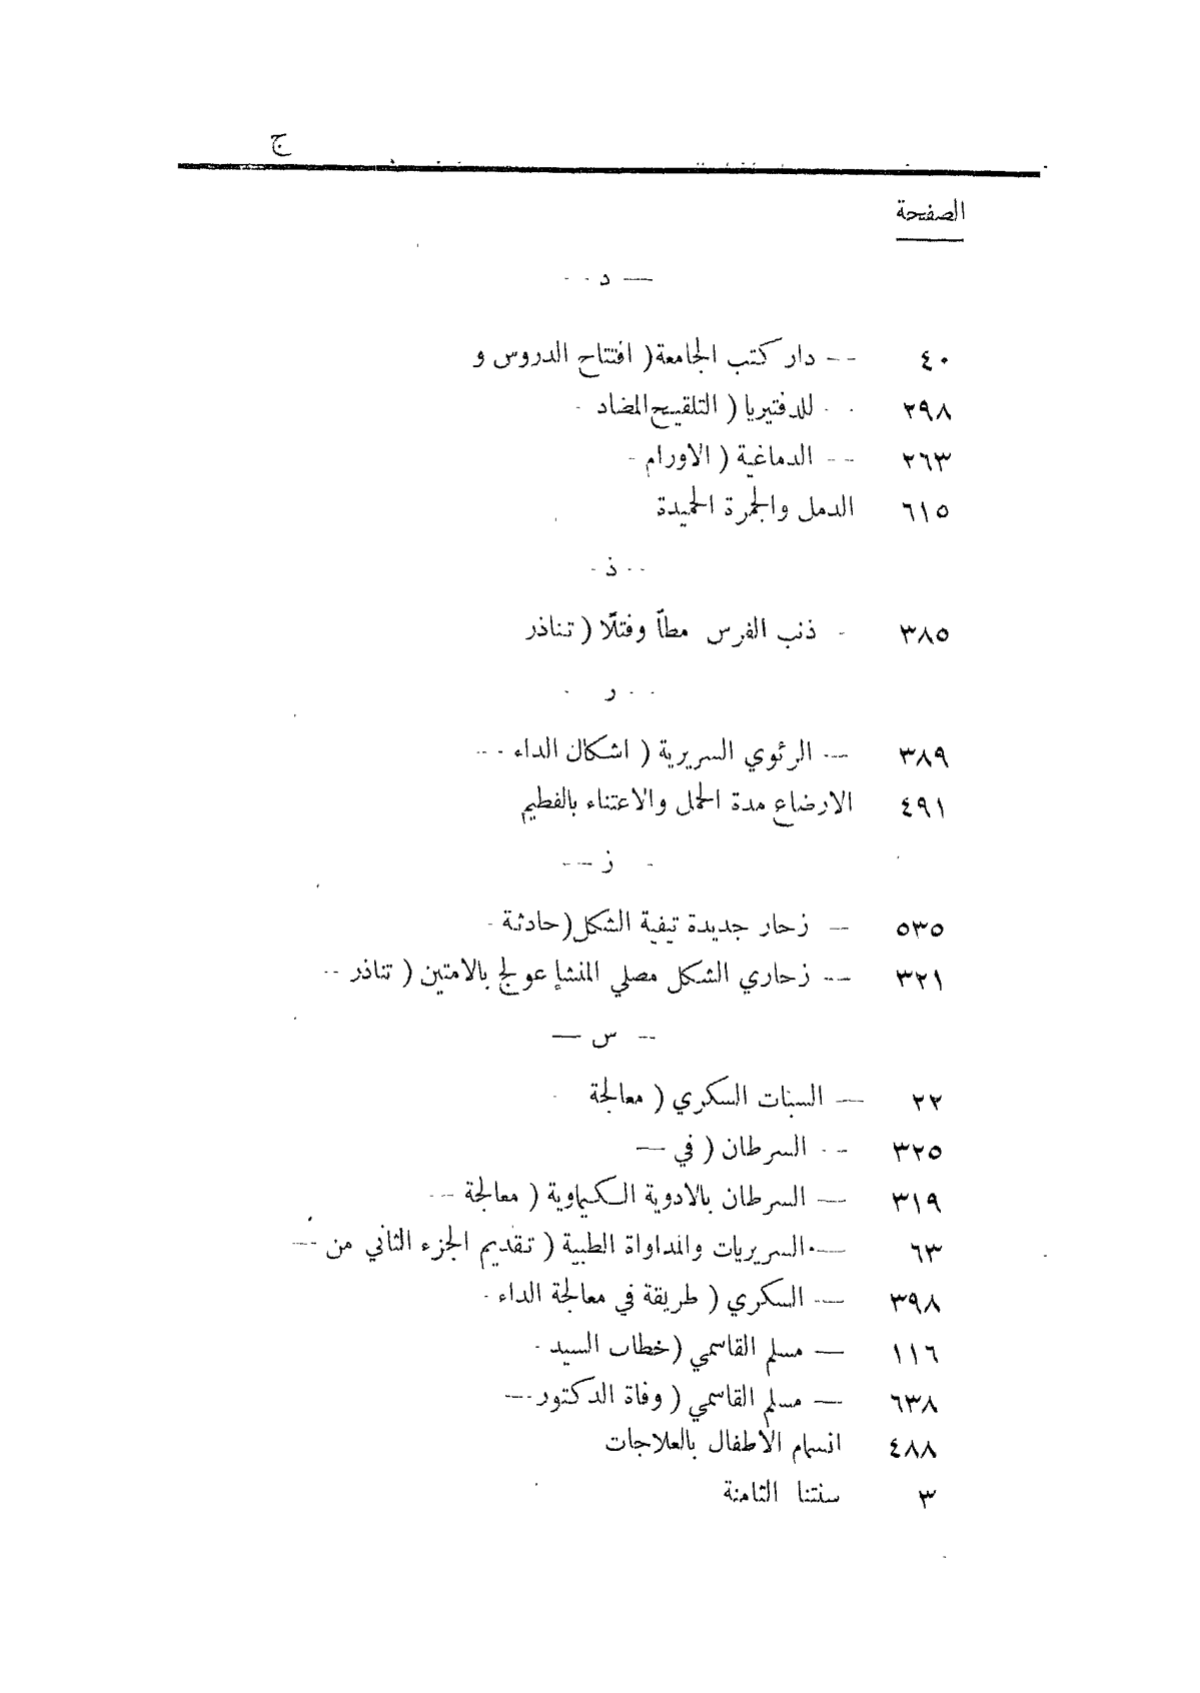 ج
الصفحة
— د —
٤٠ — دار كتب الجامعة ( افتتاح الدروس و
٢٩٨ — للدفتيريا ( التلقيح المضاد —
٢٦٣ — الدماغية ( الاورام —
٦١٥ الدمل والجمرة الحميدة
— ذ —
٣٨٥ — ذنب الفرس مطاً وفتلًا ( تناذر
— ر —
٣٨٩ — الرئوي السريرية ( اشكال الداء —
٤٩١ الارضاع مدة الحمل والاعتناء بالفطيم
— ز —
٥٣٥ — زحار جديدة تيفية الشكل ( حادثة —
٣٢١ — زحاري الشكل مصلي المنشإ عولج بالامتين ( تناذر —
— س —
٢٢ — السبات السكري ( معالجة
٣٢٥ — السرطان ( في —
٣١٩ — السرطان بالادوية الكيماوية ( معالجة —
٦٣ — السريريات والمداواة الطبية ( تقديم الجزء الثاني من —
٣٩٨ — السكري ( طريقة في معالجة الداء —
١١٦ — مسلم القاسمي ( خطاب السيد —
٦٣٨ — مسلم القاسمي ( وفاة الدكتور —
٤٨٨ انسمام الاطفال بالعلاجات
٣ سنتنا الثامنة